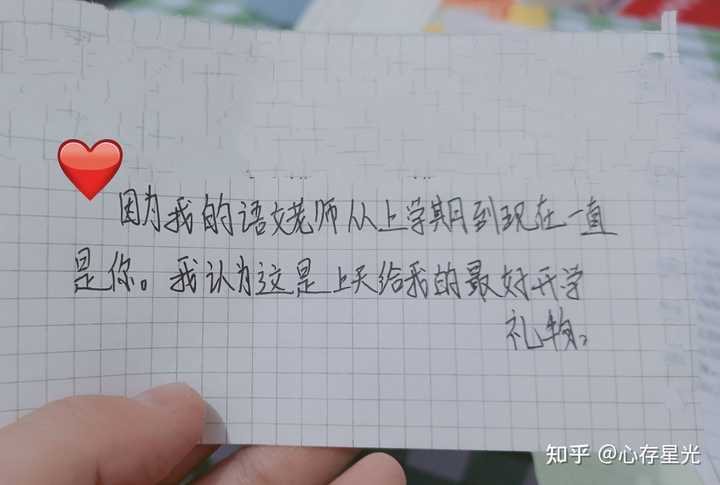 因为我的语文老师从上学期到现在一直
是你。我认为这是上天给我的最好开学
礼物。
知乎 @心存星光